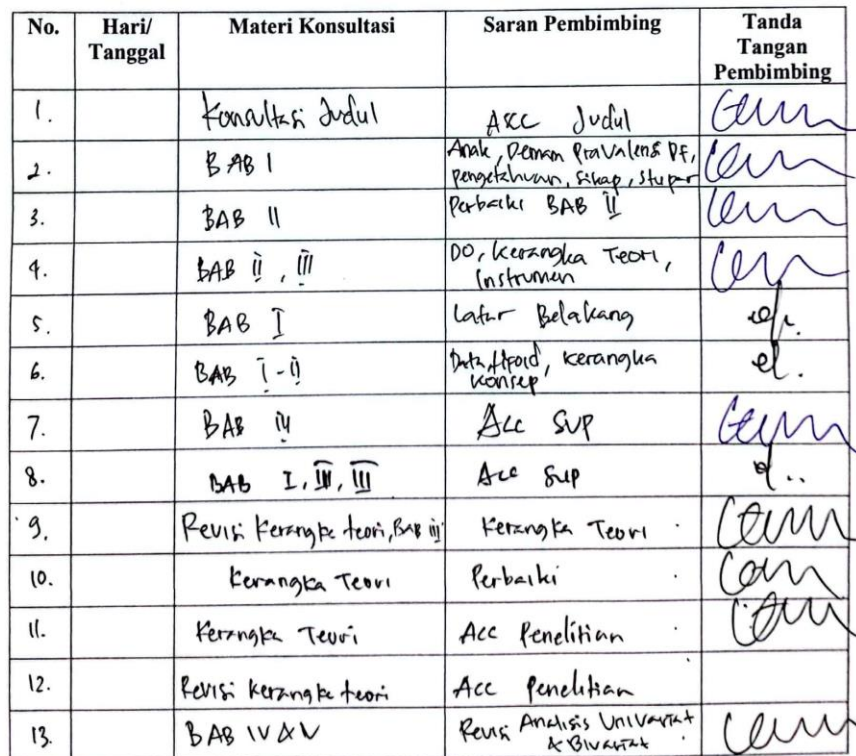 No. Hari/ Tanggal Materi Konsultasi Saran Pembimbing Tanda Tangan Pembimbing
1. Konsultasi Judul ACC Judul
2. BAB I Anak, Demam Pravalensi Df,
pengetahuan, sikap,
3. BAB II Perbaiki BAB II
4. BAB II, III DO, Kerangka Teori,
Instrumen
5. BAB I Latar Belakang
6. BAB I - II Data tifoid, kerangka
konsep
7. BAB Acc SUP
8. BAB I, III Acc Sup
9. Revisi Kerangka teori, BAB III Kerangka Teori
10. Kerangka Teori Perbaiki
11. Kerangka Teori Acc Penelitian
12. Revisi kerangka teori Acc Penelitian
13. BAB IV & V Revisi Analisis Univariat
& Bivariat